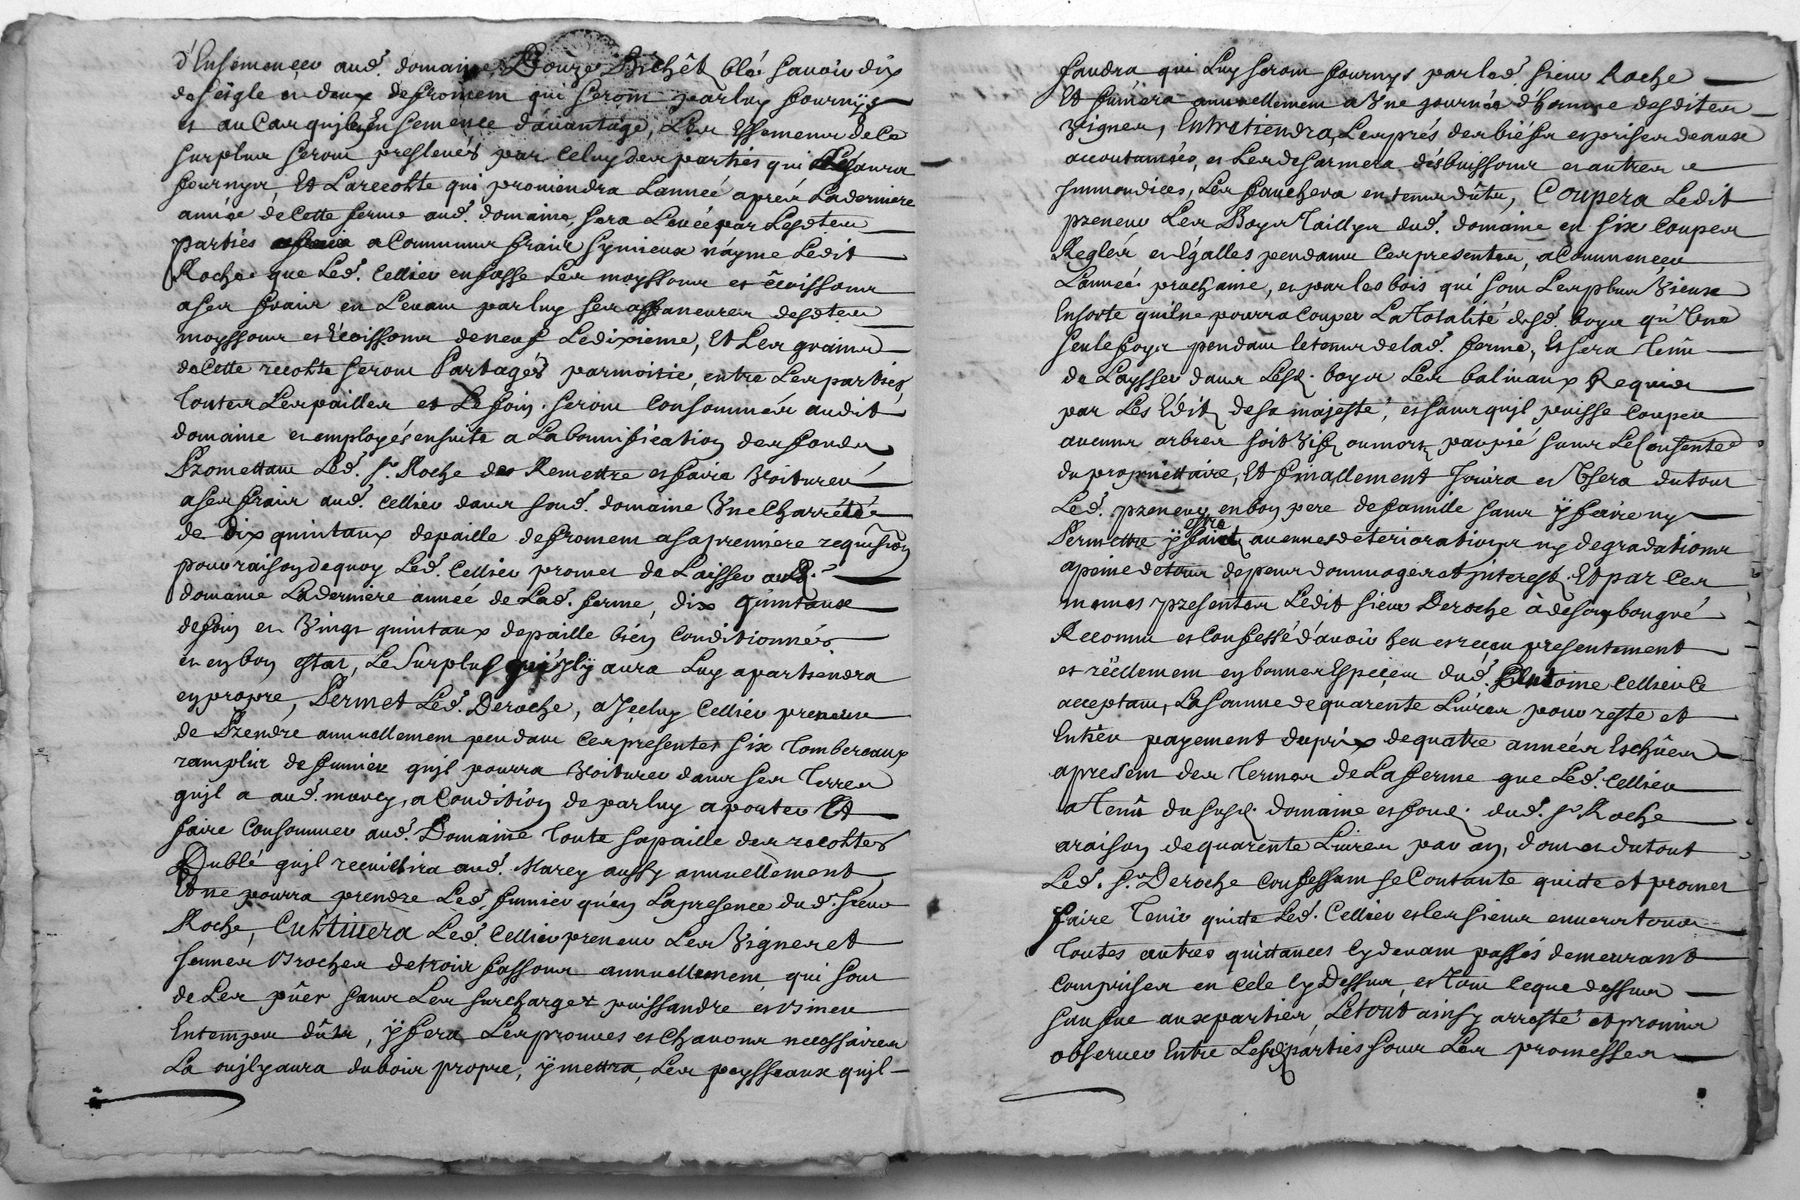 d'Ensemencer aud. domaine, Douze Bichet blé savoir dix
de seigle et deux de froment qui seront par luy fournys
et au Cas quil en semence davantage, Les semences de Ce
surplus seront preslevés par Celuy des parties qui Les aura
fournyr, Et La recolte qui proviendra Lanneé aprés La derniere
année de Cette ferme aud. domaine, sera Levéé par Lesdtes
parties a Communs fraix sy mieux n'ayme Ledit
Roche que Led. Cellier en fasse Les moyssons et
a ses fraix en Levant par luy ses affaneures desdtes
moyssons et de neuf Le dixieme, Et Les grains
de Cette recolte seront Partagés par moitié, entre Les parties,
Toutes Les pailles et Le foin seront Consommés audit
domaine et employés ensuite a La bonnification des fonds
Promettant Led. Sr. Roche de Remettre et faire Voiturer
a ses fraix aud. Cellier dans soud. domaine Vne Charretée
de dix quintaux de paille de froment a sa premiere requision
pour raison de quoy Led. Cellier promet de Laisser aud.
domaine La derniére année de Lad. ferme, dix quintaux
de foin et Vingt quintaux de paille bién Conditionnés
et en bon estat, Le Surplus qu'jl y aura Luy apartiendra
en propre, Permet Led. Deroche, a Jceluy Cellier preneur
de Prendre annuellement pendant Ces presentes six Tombereaux
ramplis de fumier qujl pourra Voiturer dans ses Terres
qujl a aud. marcy, a Condition de par luy aporter Et
faire Consommer aud. Domaine Toute sa paille des recoltes
Du blé qujl recuillira aud. Marcy aussy annuellement
Et ne pourra prendre Led. fumier qu'en La presence dud. sieur
Roche, Cultivera Led. Cellier preneur Les Vignes et
Broches de trois fassons annuellement, qui sont
de Les sans Les surcharger et Viner
En temps dûs, ÿ fera Les prouves et Chavons necessaires
La oujl y aura du bois propre, ÿ mettra, Les paysseaux qujl
faudra qui Luy seront fournys par led. sieur Roche
Et fumera annuellement a Vne journée d'homme desdites
Vignes, Entretiendra, Les prés des biéfs et prises deaux
accoutumées, et Les desarmera dés buissons et autres
Jmmondices, Les fauchera en tems dûs, Coupera Ledit
preneur Les Boys Taillys dud. domaine en six Coupes
Reglés et Egalles pendant Ces presentes, a Commencer
L'année prochaine, et par les bois qui sont Les plus Vieux
Ensorte quil ne pourra Couper La Totalité desd. boys qu'Vne
seule foys pendant le tems de lad. ferme, Et sera Tenû
de Laysser dans Lesd. boys Les balivaux Requis
par Les Edits de sa majesté, et sans qujl puisse Couper
aucuns arbres soit Vifs ou morts par pié sans Le Consente
du propriettaire, Et finallement Jouira et Vsera du tout
Led. preneur en bon pere de famille sans ÿ faire ny
Permettre ÿ estre fait aucunes deteriorations ny degradations
a peine de tous depens dommages et Jnterest. Et par Ces
mémes presentes Ledit sieur Deroche à de son bon gré
Reconnu et Confessé d'avoir heu et reçeu presentement
et reellement en bonnes Espéces dud. Antoine Cellier Ce
acceptant, La somme de quarente Livres pour reste et
Entier payement du prix de quatre années Escheües
a present des Termes de La ferme que Led. Cellier
a Tenû du susd. domaine et fond. dud. Sr. Roche
a raison de quarente Livres par an, dont et du tout
Led. Sr. Deroche Confessant se Contante quitte et promet
faire Tenir quitte Led. Cellier et les siens envers tous
Toutes autres quittances Cy devant passés demeurant
Comprises en Cele Cy Dessus, et Tout Ceque dessus
sauf aux parties, Le tout ainsy arresté et promis
observer Entre Lesd. parties sous Les promesses